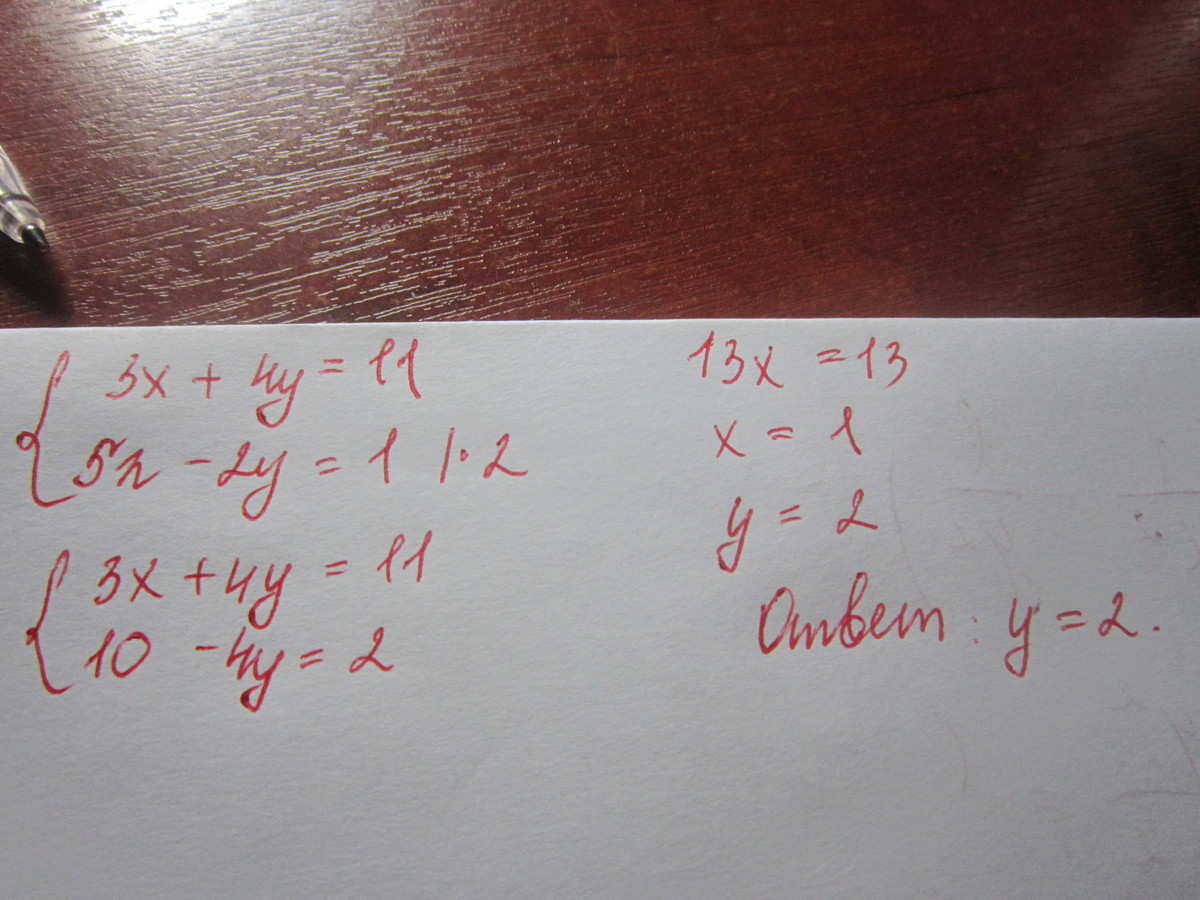 3x + 4y = 11
5x - 2y = 1 | · 2
3x + 4y = 11
10 - 4y = 2
13x = 13
x = 1
y = 2
Ответ: y = 2.